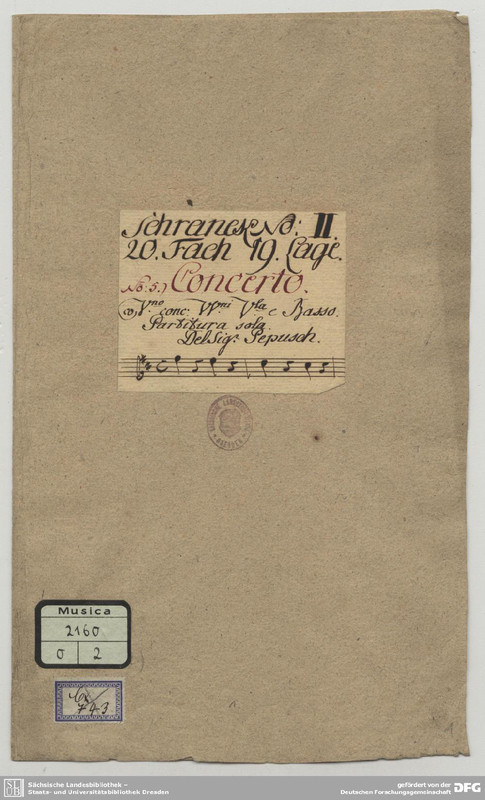 Schranck No: II.
20. Fach 19. Lage.
No: 5.) Concerto.
co V.no conc: VV.ni V.la e Basso.
Partitura sola.
Del Sig.r Pepusch.
Musica
2160
O 2
743
Sächsische Landesbibliothek –
Staats- und Universitätsbibliothek Dresden
gefördert von der
Deutschen Forschungsgemeinschaft DFG